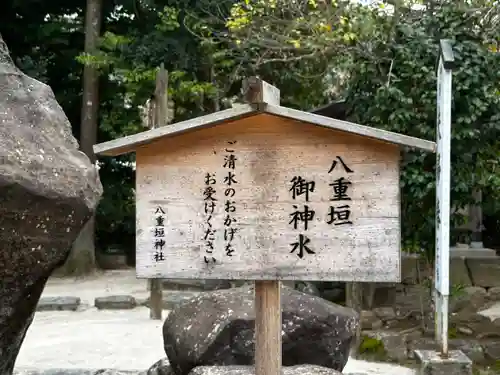 八重垣
御神水
ご清水のおかげを
お受けください
八重垣神社